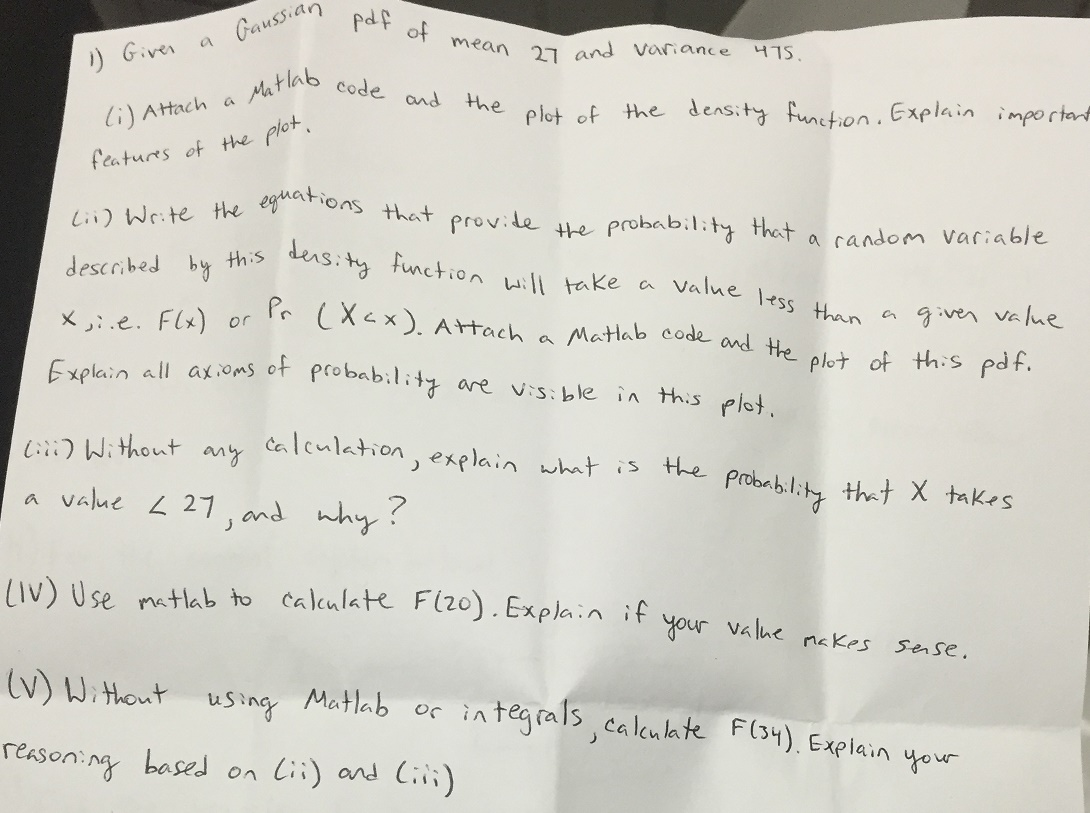 1) Given a Gaussian pdf of mean 27 and variance 475.
(i) Attach a Matlab code and the plot of the density function. Explain important
features of the plot.
(ii) Write the equations that provide the probability that a random variable
described by this density function will take a value less than a given value
x, i.e. F(x) or Pr (X<x). Attach a Matlab code and the plot of this pdf.
Explain all axioms of probability are visible in this plot.
(iii) Without any calculation, explain what is the probability that X takes
a value < 27, and why?
(IV) Use matlab to calculate F(20). Explain if your value makes sense.
(V) Without using Matlab or integrals, calculate F(34). Explain your
reasoning based on (ii) and (iii)